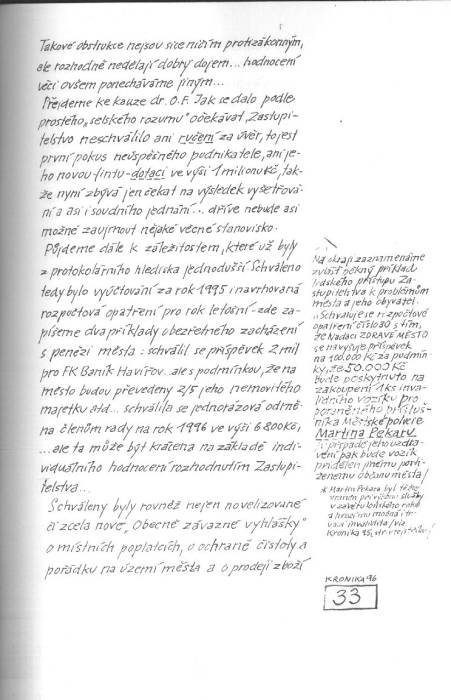 Takové obstrukce nejsou sice ničím protizákonným,
ale rozhodně nedělají dobrý dojem... hodnocení
věci ovšem ponecháváme jiným...
Přejdeme ke kauze dr. O.F. Jak se dalo podle
prostého „selského rozumu" očekávat, Zastupi-
telstvo neschválilo ani ručení za úvěr, to jest
první pokus neúspěšného podnikatele, ani je-
ho novou fintu-dotaci ve výši 1 milionu Kč, tak-
že nyní zbývá jen čekat na výsledek vyšetřová-
ní a asi i soudního jednání... dříve nebude asi
možné zaujmout nějaké věcné stanovisko.
Půjdeme dále k záležitostem, které už byly
z protokolárního hlediska jednodušší. Schváleno
tedy bylo vyúčtování za rok 1995 i navrhovaná
rozpočtová opatření pro rok letošní - zde za-
píšeme dva příklady obezřetného zacházení
s penězi města: schválil se příspěvek 2 mil
pro FK Baník Havířov.. ale s podmínkou, že na
město budou převedeny 2/5 jeho nemovitého
majetku atd... schválila se jednorázová odmě-
na členům rady na rok 1996 ve výši 6 800 Kč,
...ale ta může být krácena na základě indi-
viduálního hodnocení rozhodnutím Zastupi-
telstva...
Schváleny byly rovněž nejen novelizované
či zcela nové „Obecně závazné vyhlášky"
o místních poplatcích, o ochraně čistoty a
pořádku na území města a o prodeji zboží
Na okraji zaznamenáme
zvlášť pěkný příklad
lidského přístupu Za-
stupitelstva k problémům
města a jeho obyvatel.
„Schvaluje se rozpočtové
opatření číslo 30 s tím,
že Nadaci ZDRAVÉ MĚSTO
se navyšuje příspěvek
na 100.000 Kč za podmín-
ky, že 50.000 Kč
bude poskytnuto na
zakoupení 1 ks inva-
lidního vozíku pro
poraněného přísluš-
níka Městské policie
Martina Pekaru
V případě jeho uzdra-
vení pak bude vozík
přidělen jinému posti-
ženému občanu města!
* Martin Pekara byl těžce
zraněn při výkonu služby
v závěru loňského roku
a hrozí mu možná i tr-
valá invalidita / viz
Kronika 95,
KRONIKA 96
33